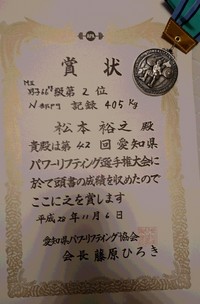 賞状
M2
男子66kg級第2位
Nomura 記録405kg
松本裕之殿
貴殿は第42回愛知県
パワーリフティング選手権大会に
於て頭書の成績を収めたので
ここに之を賞します
平成28年11月6日
愛知県パワーリフティング協会
会長 藤原ひろき